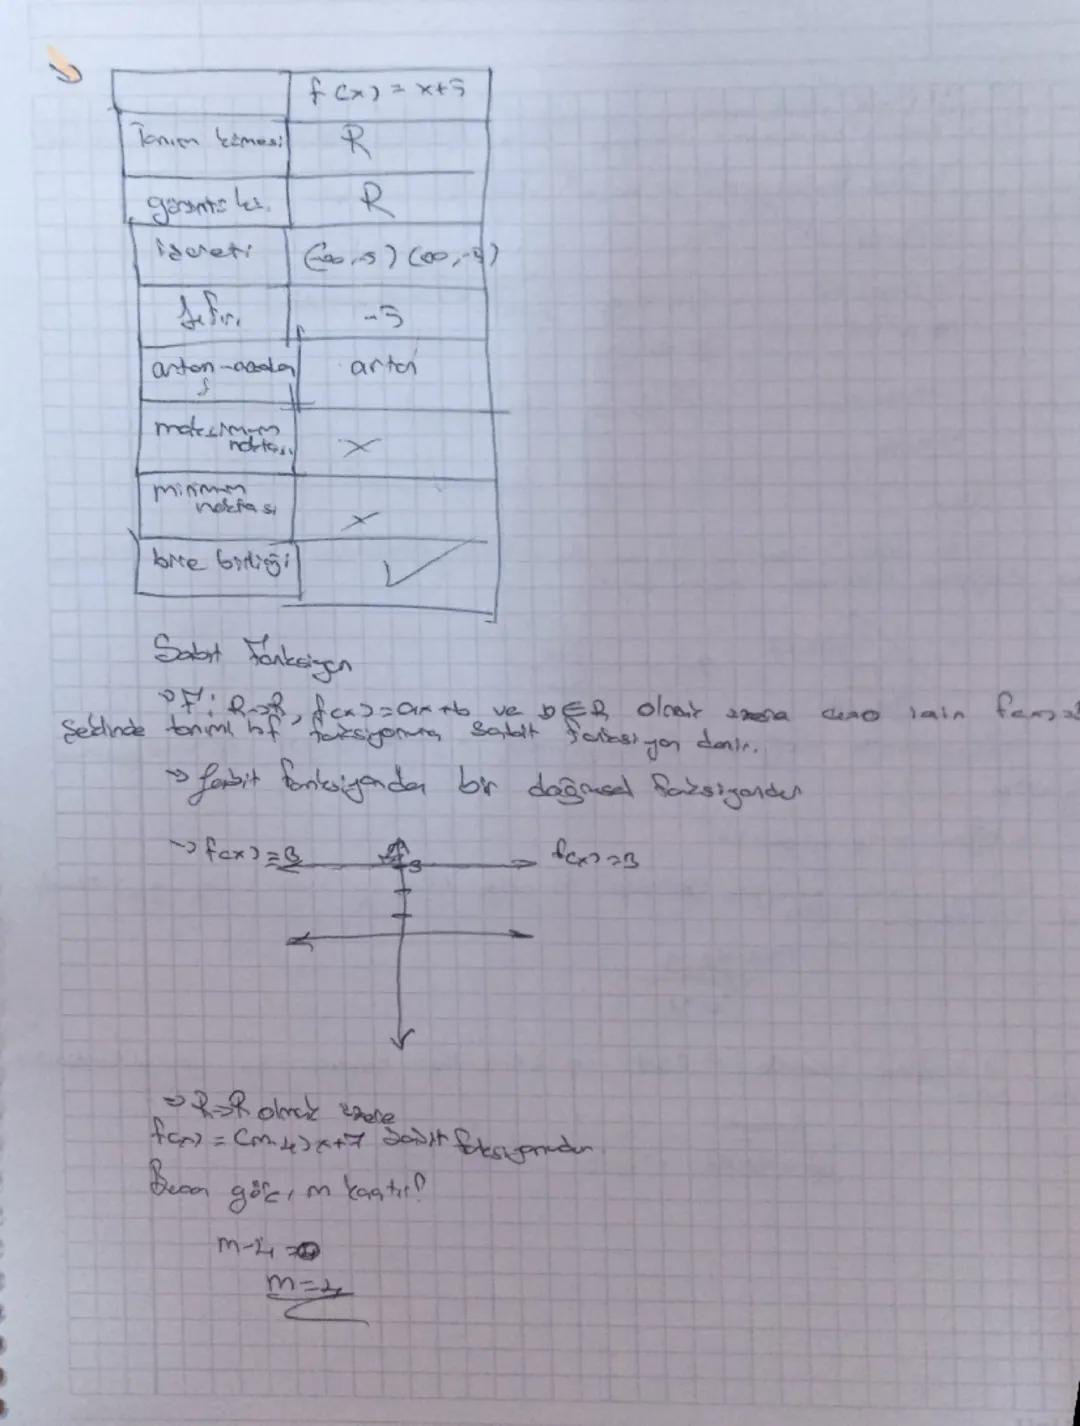 f(x) = x+5
Tanım kümesi R
görüntü kü. R
işareti (-∞,-5) (∞,-5)
sıfırı -5
artan-azalan artan
maksimum
noktası X
minimum
noktası X
bire birliği ✓
Sabit Fonksiyon
→ F: R→R, f(x)=ax+b ve b∈R olmak üzere a=0 için
şeklinde tanımlı f fonksiyonuna sabit fonksiyon denir.
→ Sabit fonksiyonda bir doğrusal fonksiyondur
→ f(x)=3 3 f(x)=3
→ R→R olmak üzere
f(x) = (m-4)x+7 sabit fonksiyondur.
Buna göre, m kaçtır?
m-4=0
m=4